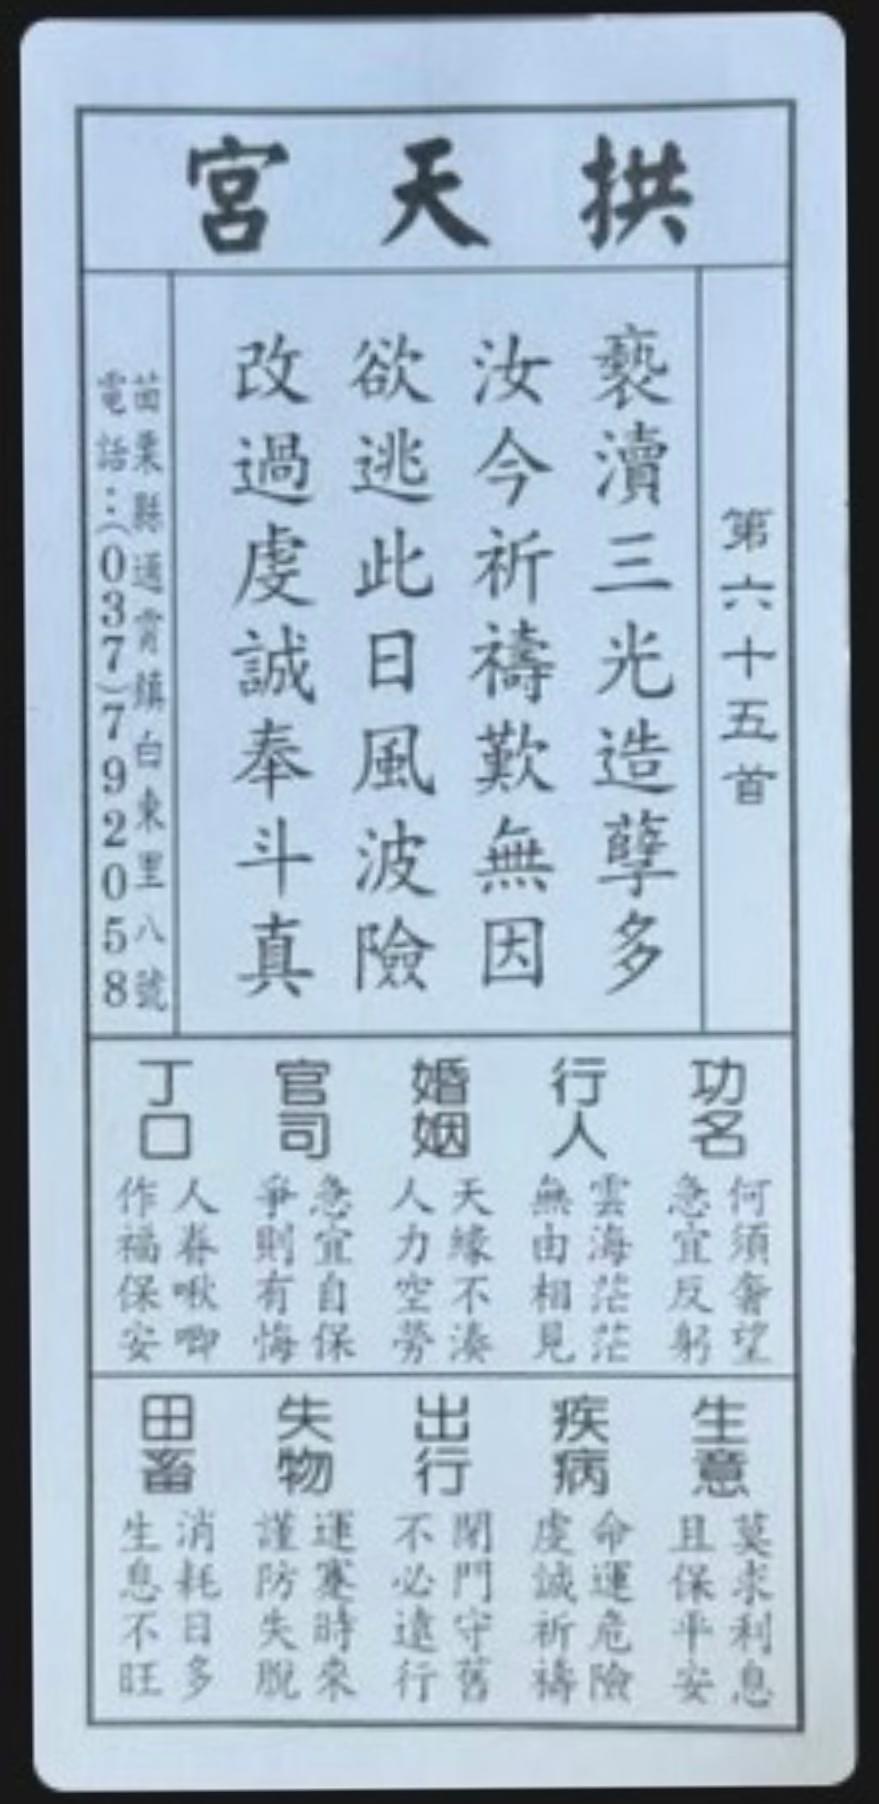 拱天宮
第六十五首
褻瀆三光造孽多
汝今祈禱歎無因
欲逃此日風波險
改過虔誠奉斗真
苗栗縣通霄鎮白東里八號
電話：(037)792058
功名
何須奢望
急宜反躬
行人
雲海茫茫
無由相見
婚姻
天緣不湊
人力空勞
官司
急宜自保
爭則有悔
丁口
人眷啾唧
作福保安
生意
莫求利息
且保平安
疾病
命運危險
虔誠祈禱
出行
閉門守舊
不必遠行
失物
運蹇時來
謹防失脫
田畜
消耗日多
生息不旺